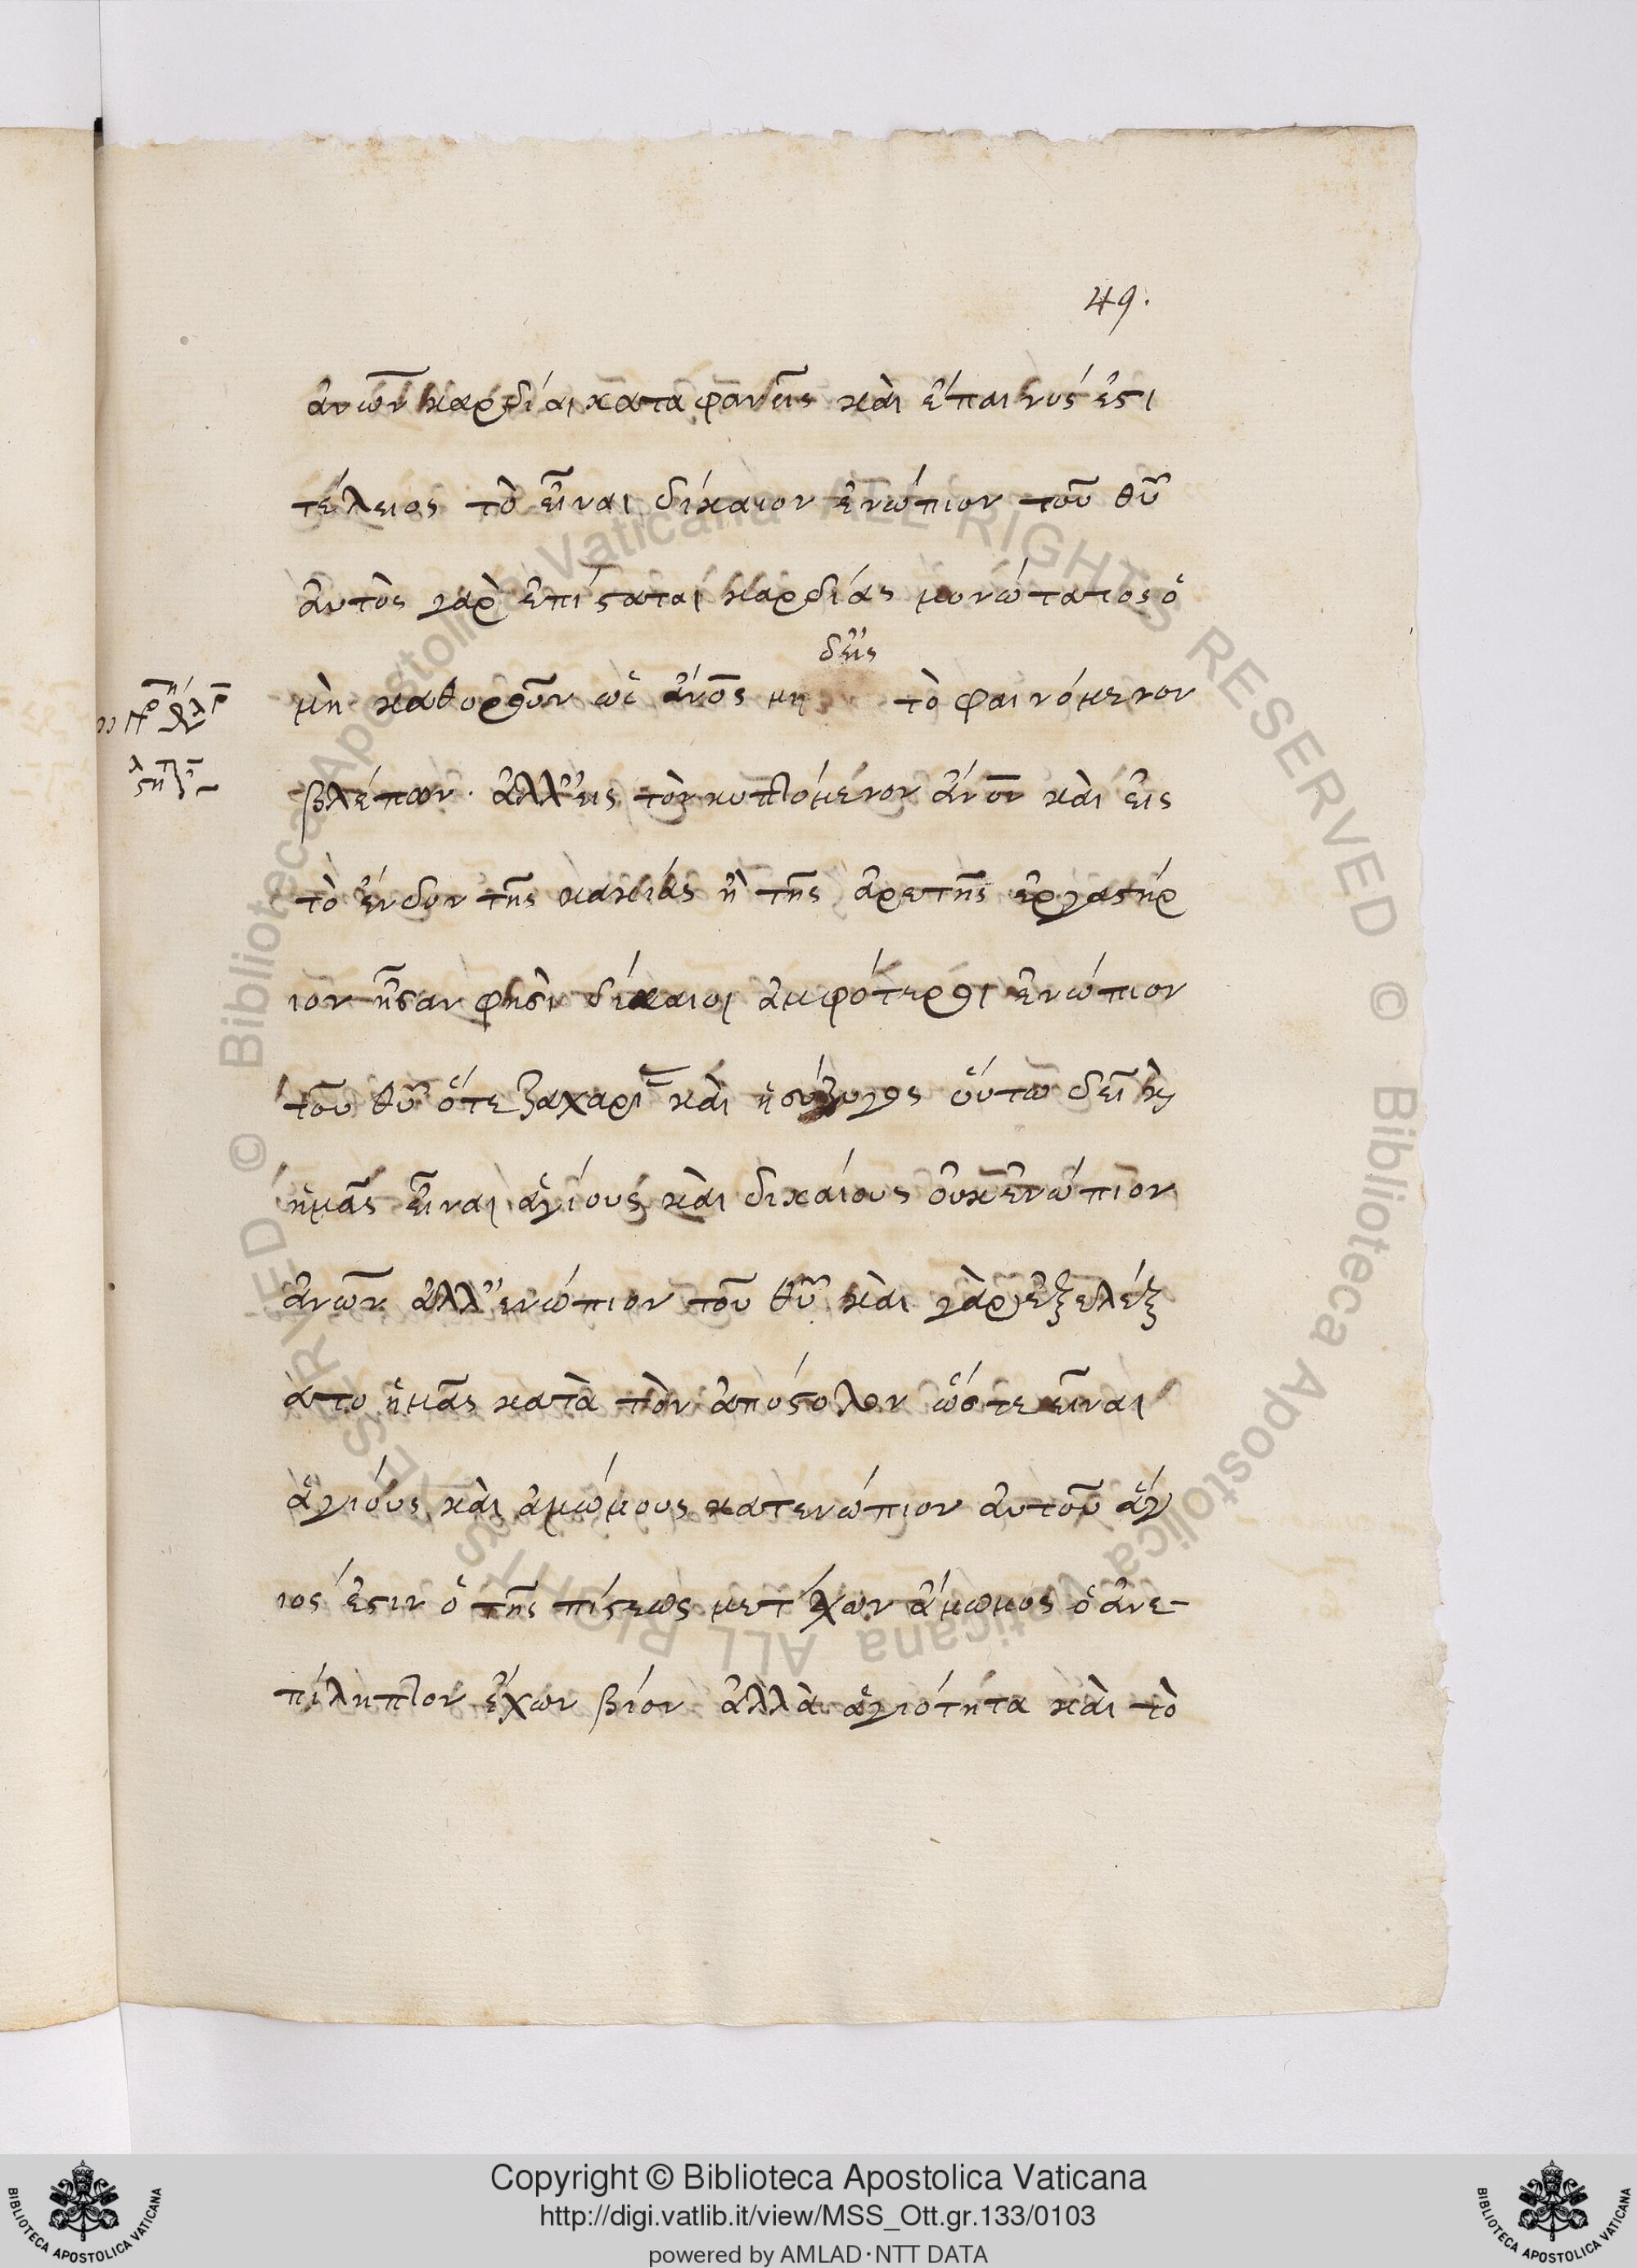 49.
ἀνων καρδίαι καταφανεῖς καὶ ἔπαινός ἐστι
τέλειος τὸ εἶναι δίκαιον ἐνώπιον τοῦ θυ
ἀυτὸς γὰρ ἐπίσταται καρδίας μονώτατος ὁ
δεις
μὴ καθορῶν ὡς ἄνος μη τὸ φαινόμενον
βλέπων· ἀλλ' εἰς τὸν κυπτόμενον ἄνον καὶ εἰς
τὸ ἔνδον τῆς κακίας ἢ τῆς ἀρετῆς ἐργαστήρ
ιον ἦσαν φησὶ δίκαιοι ἀμφότεροι ἐνώπιον
τοῦ θυ ὅτε ζαχαρί καὶ ἡ σύζυγος ὅυτω δεῖ κ
ἡμᾶς εἶναι ἁγίους καὶ δικαίους οὐκ ἐνώπιον
ἀνων ἀλλ' ἐνώπιον τοῦ θυ καὶ γὰρ ἐξελέξ
ατο ἡμᾶς κατὰ τὸν ἀπόστολον ὥστε εἶναι
ἁγίους καὶ ἀμώμους κατενώπιον ἀυτοῦ ἅγ
ιός ἐστιν ὁ τῆς πίστεως μετέχων ἄμωμος ὁ ἀνε-
πίληπτον ἔχων βίον ἀλλὰ ἁγιότητα καὶ τὸ
© Biblioteca Apostolica Vaticana ALL RIGHTS RESERVED © Biblioteca Apostolica Vaticana ALL RIGHTS RESERVED
Copyright © Biblioteca Apostolica Vaticana
http://digi.vatlib.it/view/MSS_Ott.gr.133/0103
powered by AMLAD·NTT DATA
BIBLIOTECA APOSTOLICA VATICANA
BIBLIOTECA APOSTOLICA VATICANA